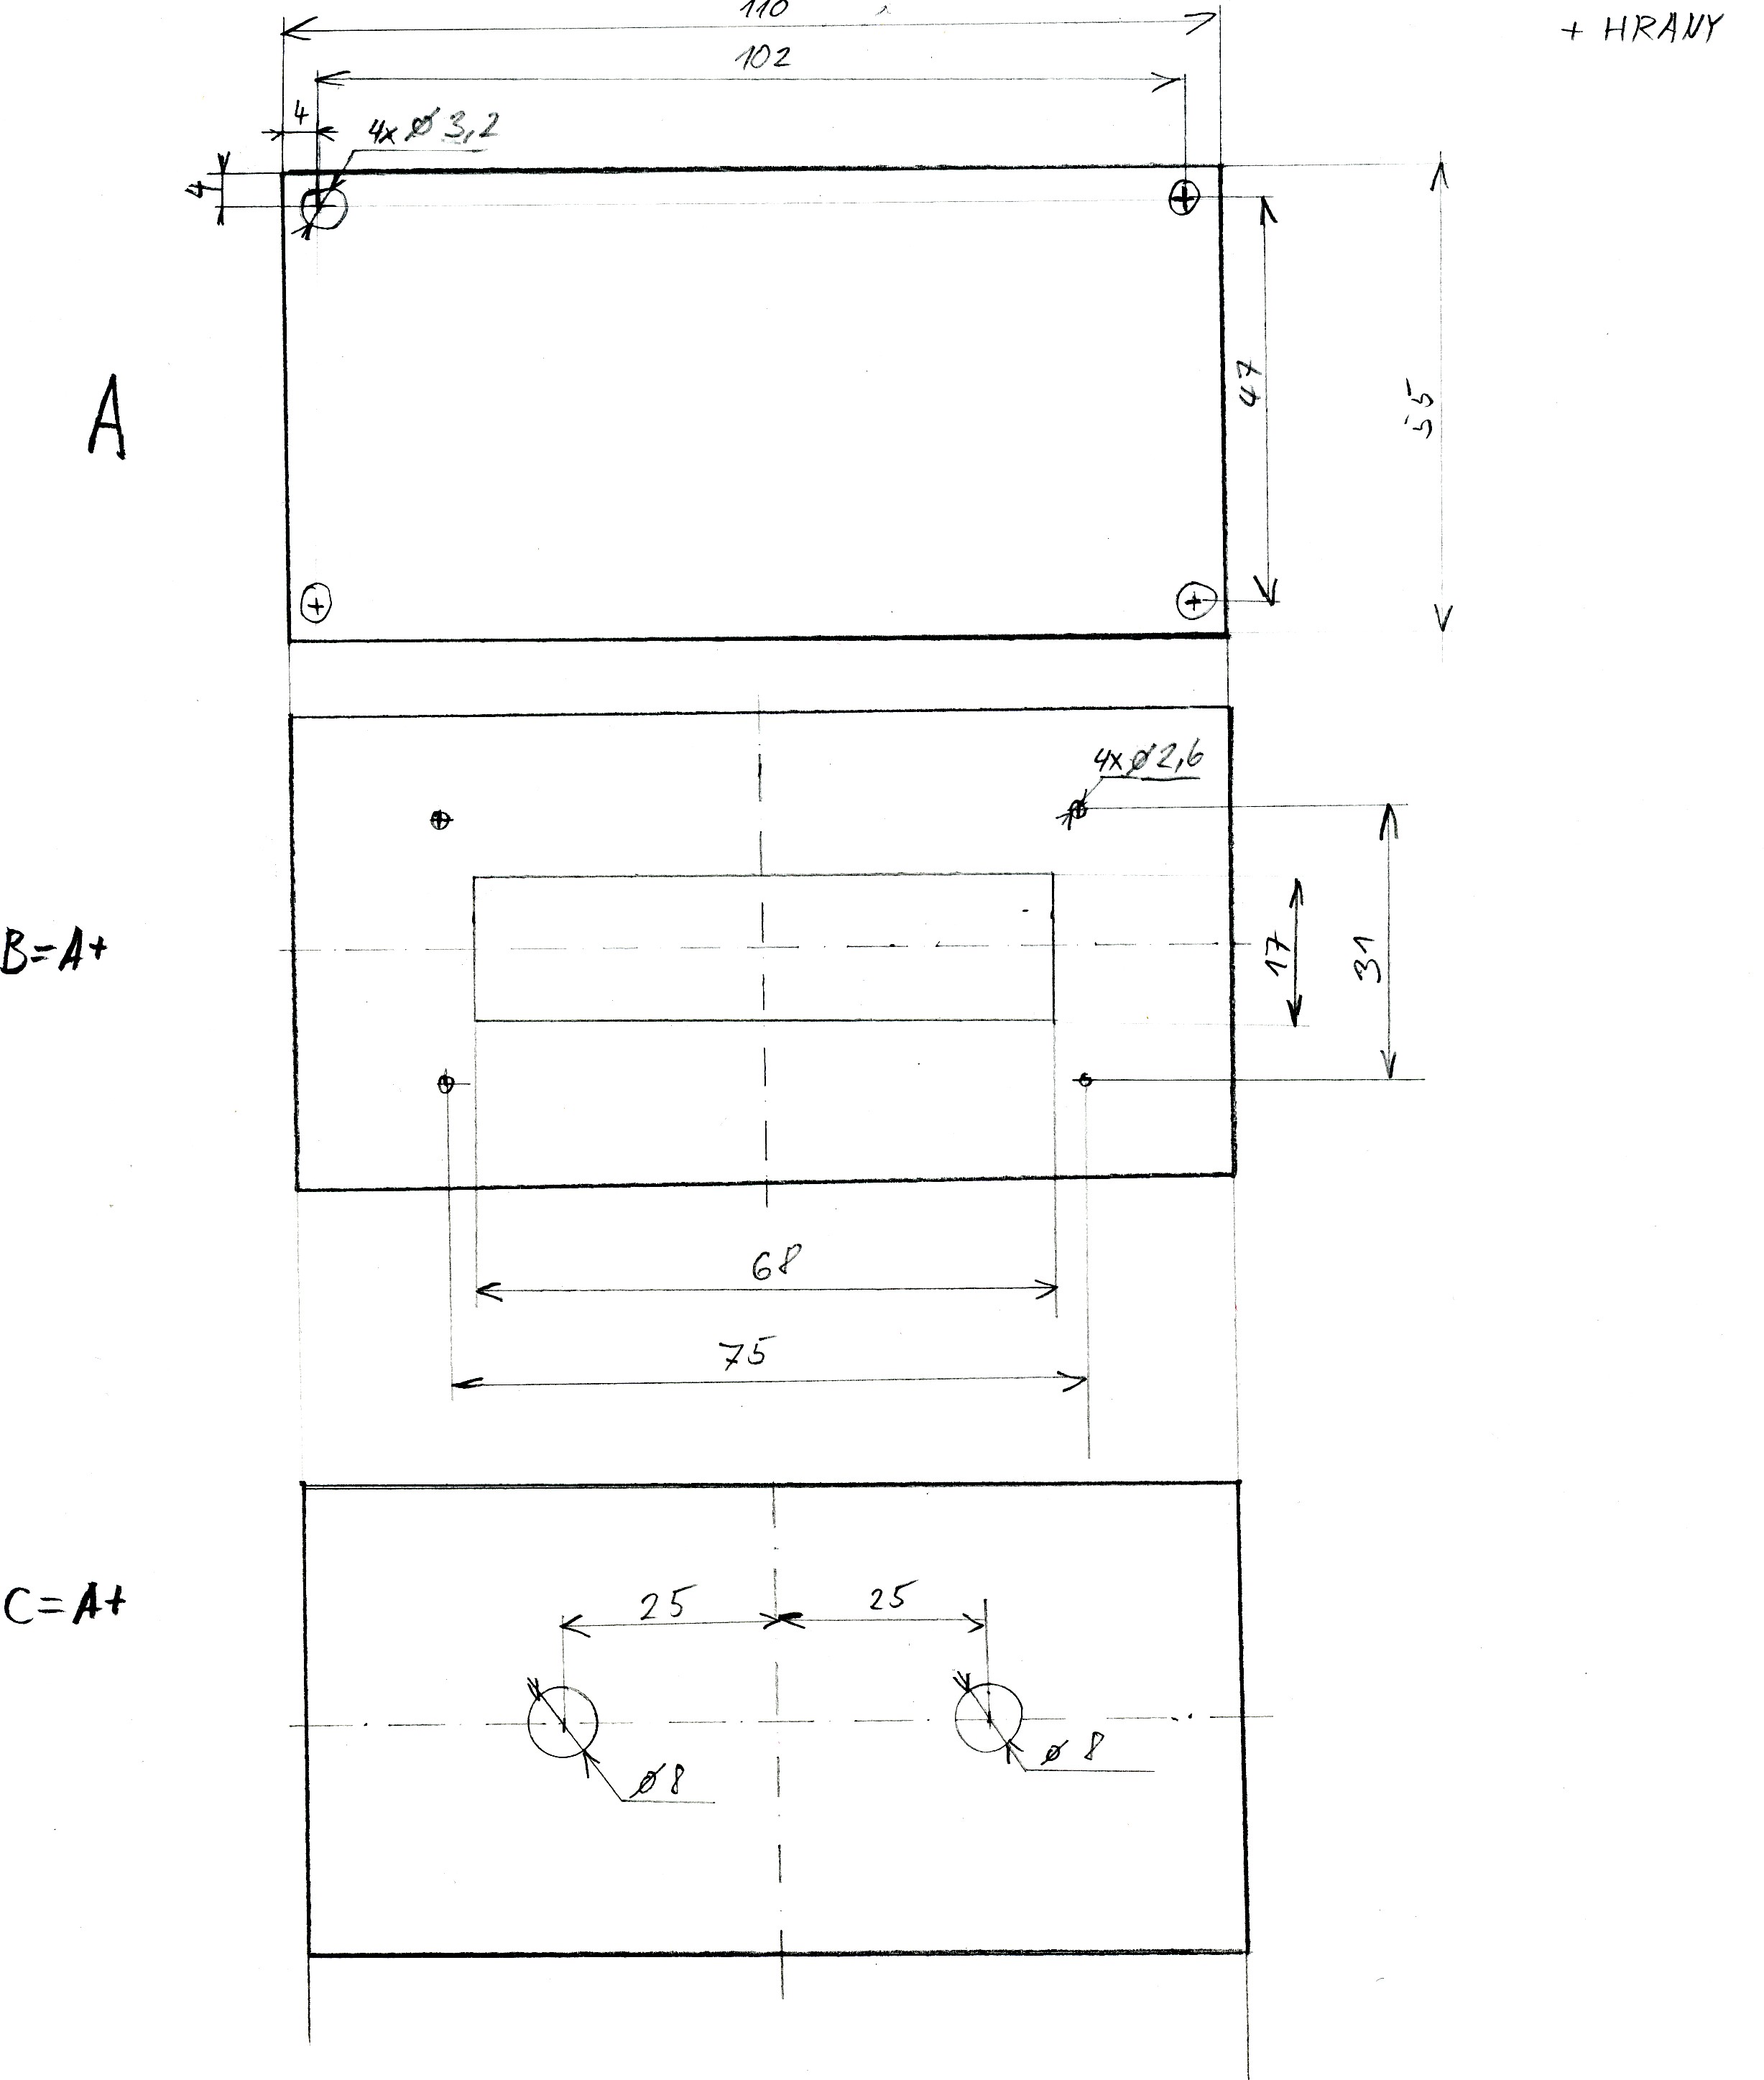 110
+ HRANY
102
4
4x Ø 3,2
4
47
55
A
4x Ø2,6
B=A+
17
31
68
75
C=A+
25
25
Ø 8
Ø 8